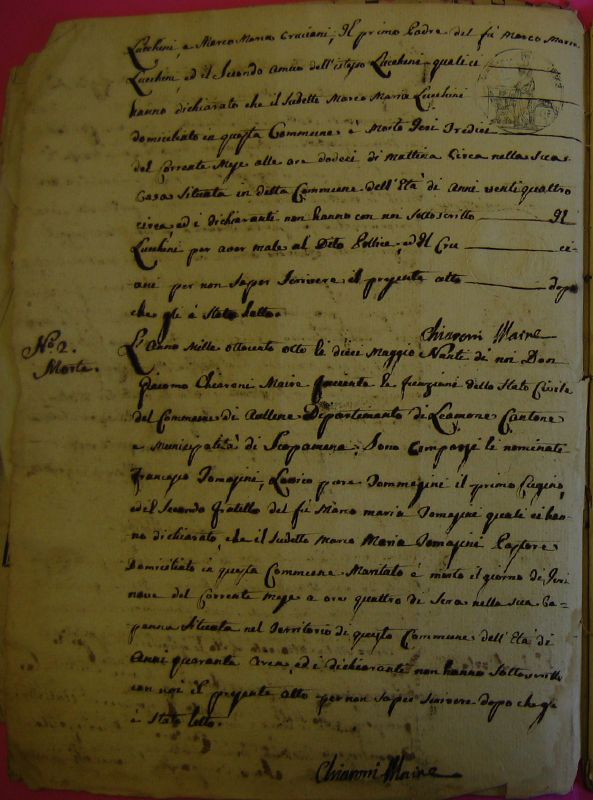 Lucchini, e Marco Maria Cruciani, Il primo Padre del fù Marco Maria
Lucchini, ed il Secondo Amico dell'istesso Lucchini quali ci
hanno dichiarato che il Sudetto Marco Maria Lucchini
domiciliato in questa Commune è Morto Jeri Tredici
del Corrente Mese alle ore dodeci di mattina Circa nella Sua
Casa Situata in detta Commune dell'Età di Anni venti quattro
circa, ed i dichiaranti non hanno con noi Sotto scritto
Lucchini per aver male al Dito Pollice, ed Il Cru ci-
ani per non Saper Scrivere il presente atto dopo
che gli è Stato letto.
Chiaroni Maire
Nº 2.
Morte.
L'Anno Mille ottocento otto li dieci Maggio Nanti di noi Don
Giacomo Chiaroni Maire facente le funzioni dello Stato Civile
del Commune di Aullene Dipartimento di Liamone Cantone
e Municipalità di Scopamene, Sono Comparsi li nominati
Francesco Tomasini, Lovico Tommasini il primo Cugino,
ed il Secondo fratello del fù Marco maria Tomasini quali ci han-
no dichiarato, che il Sudetto Marco Maria Tomasini Pastore
Domiciliato in questa Commune Maritato è morto il giorno di Jeri
nove del Corrente Mese a ore quattro di Sera nella Sua Ca-
panna Situata nel Territorio di questo Commune dell'Età di
Anni quaranta Circa, ed i dichiaranti non hanno Sottoscritto
con noi il presente atto per non Saper Scrivere dopo che gli
è Stato letto.
Chiaroni Maire